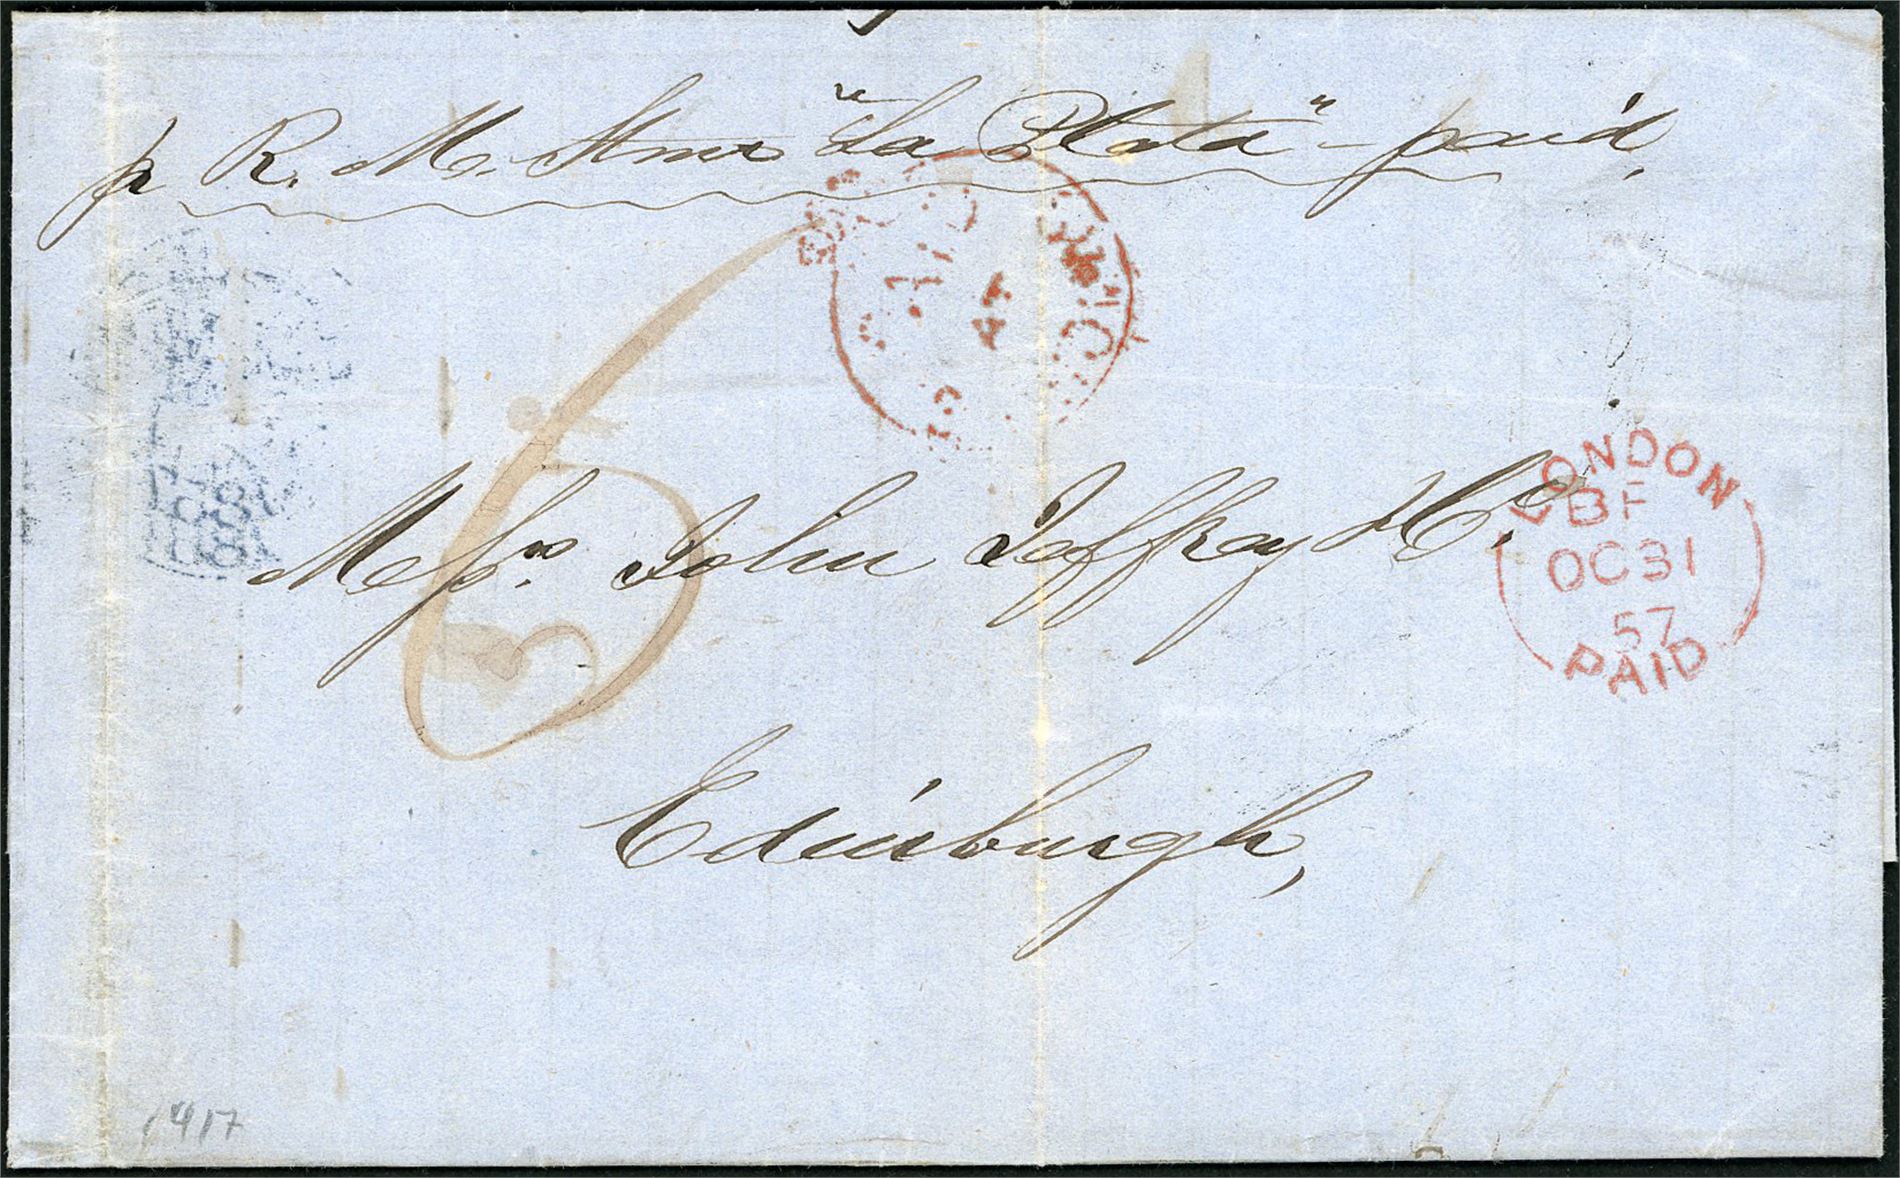 p R. M. Stmr "La Plata" - paid,
PAID AT
LONDON
BF
OC 31
57
PAID
6
Messrs. John Jeffray & Co.
Edinburgh,
1417